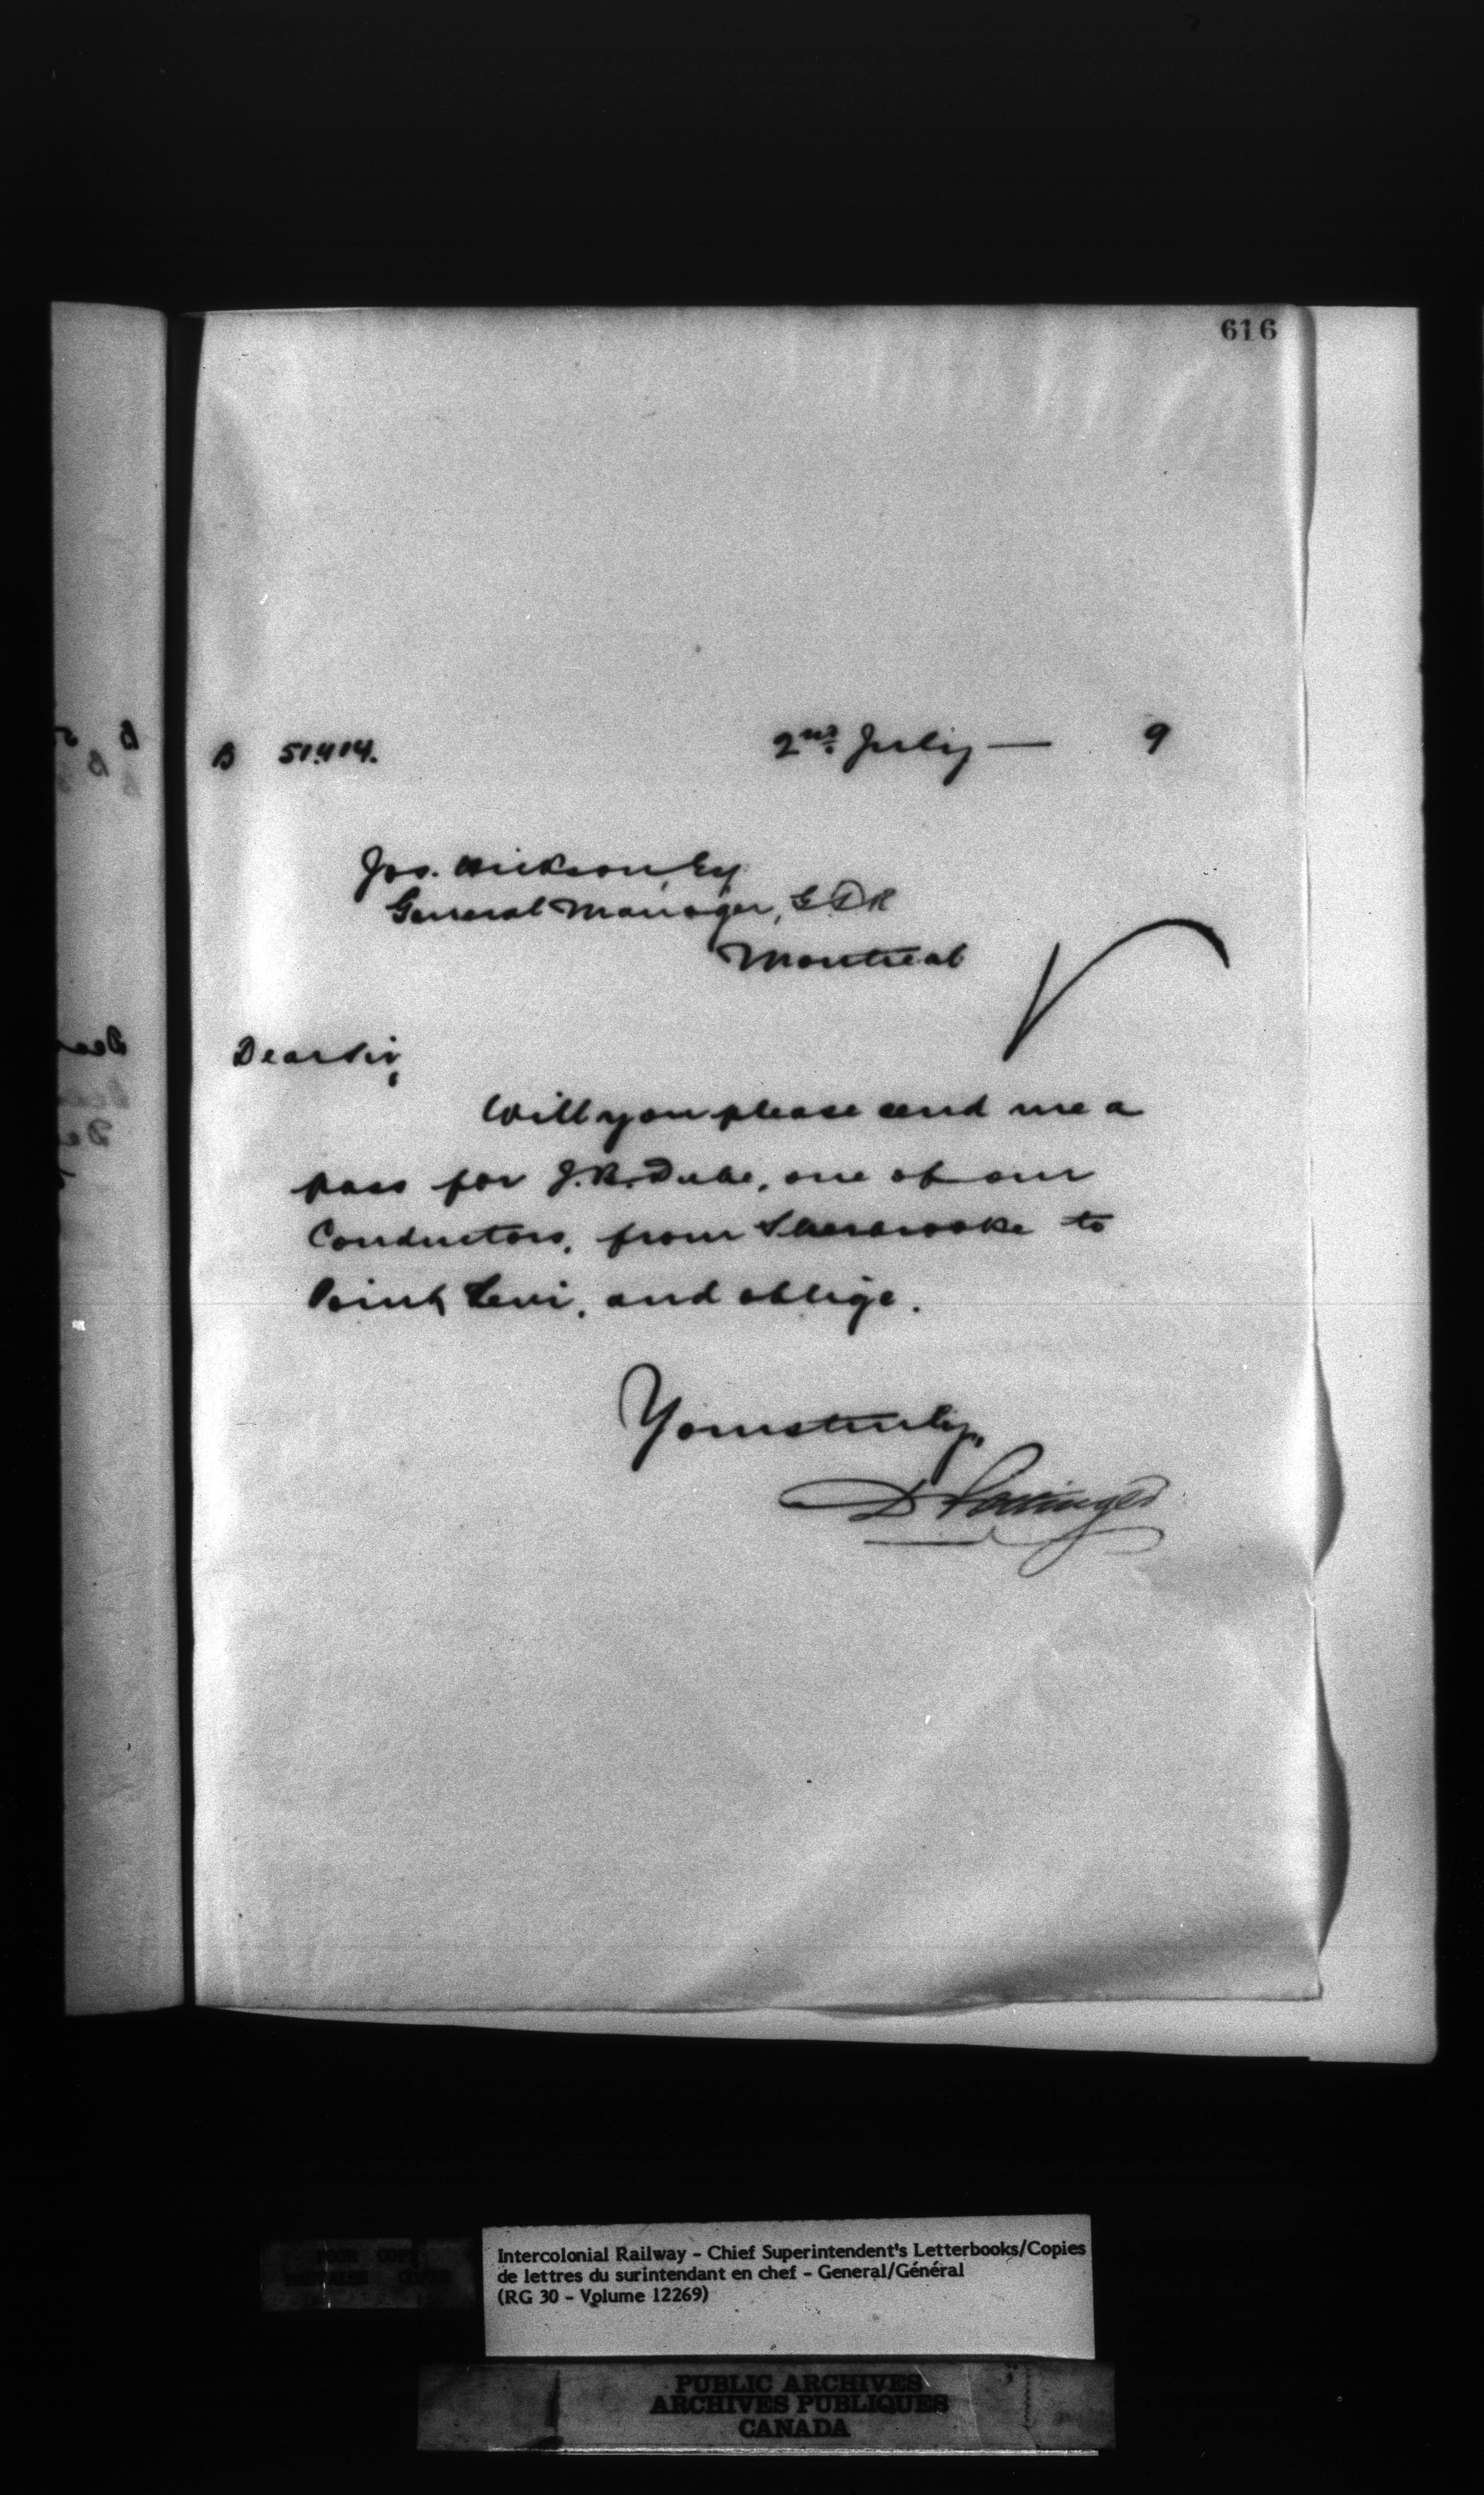 616
B 51414. 2nd July — 9
Jos. Hickson, Esq
General Manager, G.T.R
Montreal
Dear Sir,
Will you please send me a
pass for J.B. Dube, one of our
Conductors, from Sherbrooke to
Point Levi, and oblige.
Yours truly,
D Pottinger
Intercolonial Railway - Chief Superintendent's Letterbooks/Copies
de lettres du surintendant en chef - General/Général
(RG 30 - Volume 12269)
POOR COPY
MAUVAISE COPIE
PUBLIC ARCHIVES
ARCHIVES PUBLIQUES
CANADA